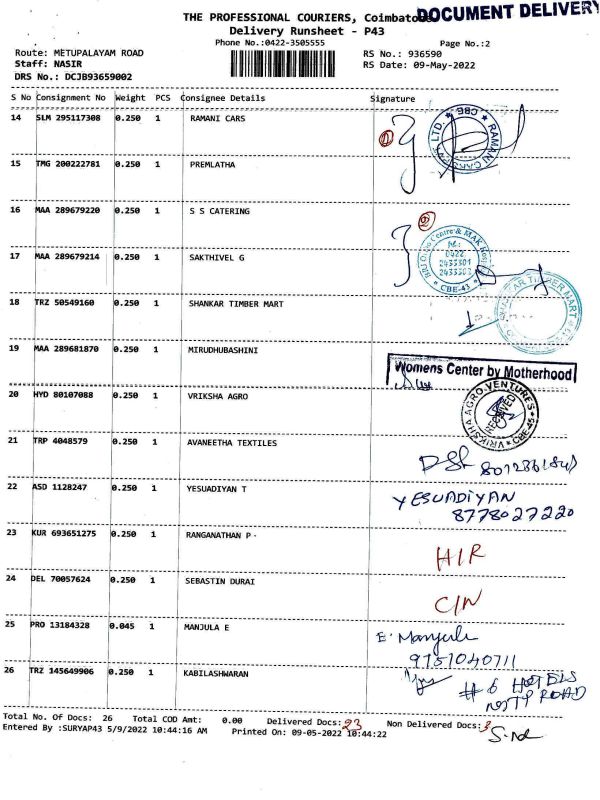 DOCUMENT DELIVERY
THE PROFESSIONAL COURIERS, Coimbatore
Delivery Runsheet - P43
Phone No.:0422-3505555
Page No.:2
Route: METUPALAYAM ROAD
RS No.: 936590
Staff: NASIR
RS Date: 09-May-2022
DRS No.: DCJB93659002
S No Consignment No Weight PCS Consignee Details Signature
14 SLM 295117308 0.250 1 RAMANI CARS
① RAMANI CARS PVT LTD. ★ CBE ★
15 TMG 200222781 0.250 1 PREMLATHA
16 MAA 289679220 0.250 1 S S CATERING
②
17 MAA 289679214 0.250 1 SAKTHIVEL G
Centre & MAK
0422
2433301
2433303
★ CBE-43 ★
18 TRZ 50549160 0.250 1 SHANKAR TIMBER MART
TIMBER MART
19 MAA 289681870 0.250 1 MIRUDHUBASHINI
Womens Center by Motherhood
20 HYD 80107088 0.250 1 VRIKSHA AGRO
VRIKSHA AGRO VENTURES ★ CBE-45 ★
RECEIVED
21 TRP 4048579 0.250 1 AVANEETHA TEXTILES
22 ASD 1128247 0.250 1 YESUADIYAN T
YESUADIYAN
8778027220
23 KUR 693651275 0.250 1 RANGANATHAN P -
H/R
24 DEL 70057624 0.250 1 SEBASTIN DURAI
C/N
25 PRO 13184328 0.045 1 MANJULA E
E. Manjula
9751040711
26 TRZ 145649906 0.250 1 KABILASHWARAN
# 6 HOTELS
ROAD
Total No. Of Docs: 26 Total COD Amt: 0.00 Delivered Docs: 23 Non Delivered Docs: 3
Entered By :SURYAP43 5/9/2022 10:44:16 AM Printed On: 09-05-2022 10:44:22